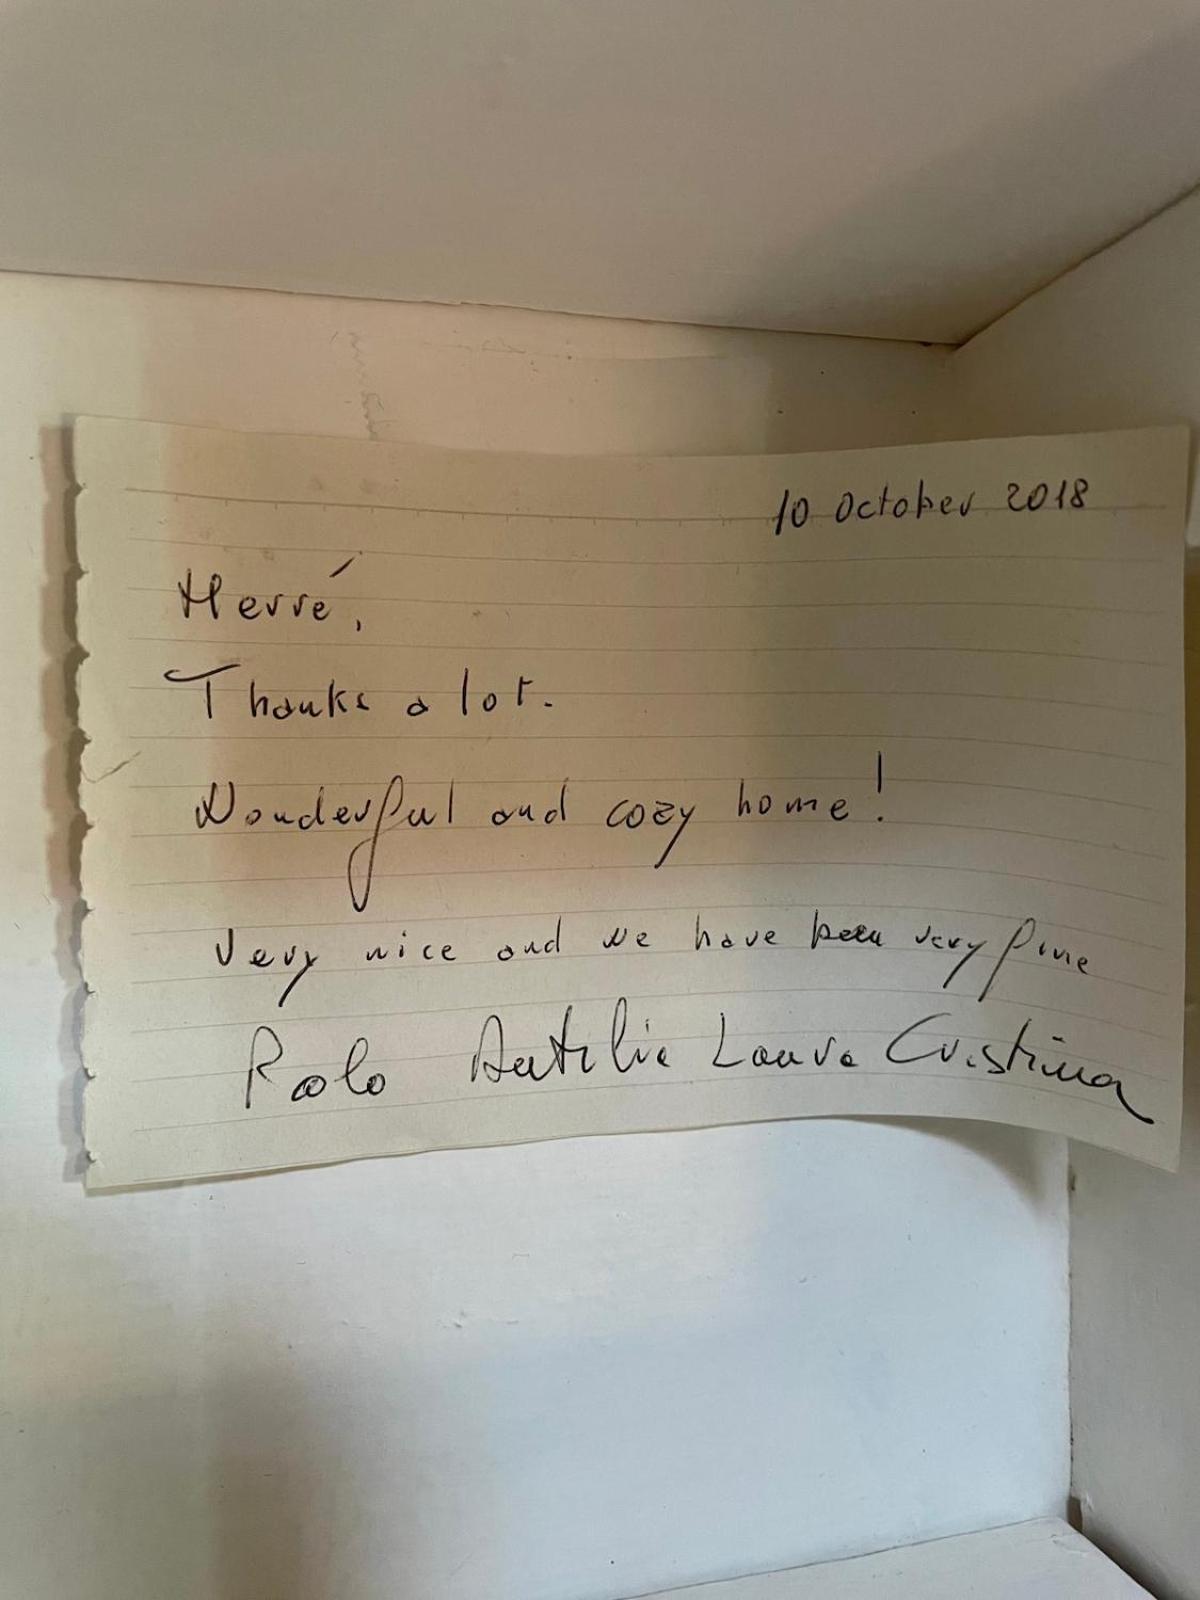 10 October 2018
Hervé,
Thanks a lot.
Wonderful and cozy home!
Very nice and we have been very fine
Laura Cristina